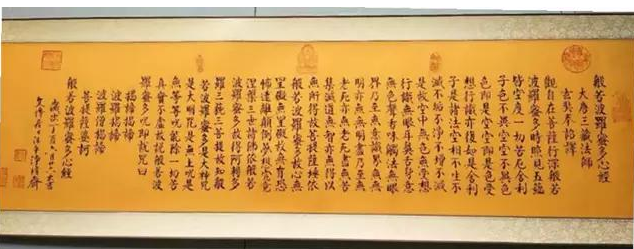 般若波羅蜜多心經
大唐三藏法師
玄奘奉詔譯
觀自在菩薩行深般若
波羅蜜多時照見五蘊
皆空度一切苦厄舍利
子色不異空空不異色
色即是空空即是色受
想行識亦復如是舍利
子是諸法空相不生不
滅不垢不淨不增不減
是故空中無色無受想
行識無眼耳鼻舌身意
無色聲香味觸法無眼
界乃至無意識界無無
明亦無無明盡乃至無
老死亦無老死盡無苦
集滅道無智亦無得以
無所得故菩提薩埵依
般若波羅蜜多故心無
罣礙無罣礙故無有恐
怖遠離顛倒夢想究竟
涅槃三世諸佛依般若
波羅蜜多故得阿耨多
羅三藐三菩提故知般
若波羅蜜多是大神咒
是大明咒是無上咒是
無等等咒能除一切苦
真實不虛故說般若波
羅蜜多咒即說咒曰
揭諦揭諦
波羅揭諦
波羅僧揭諦
菩提薩婆訶
般若波羅蜜多心經